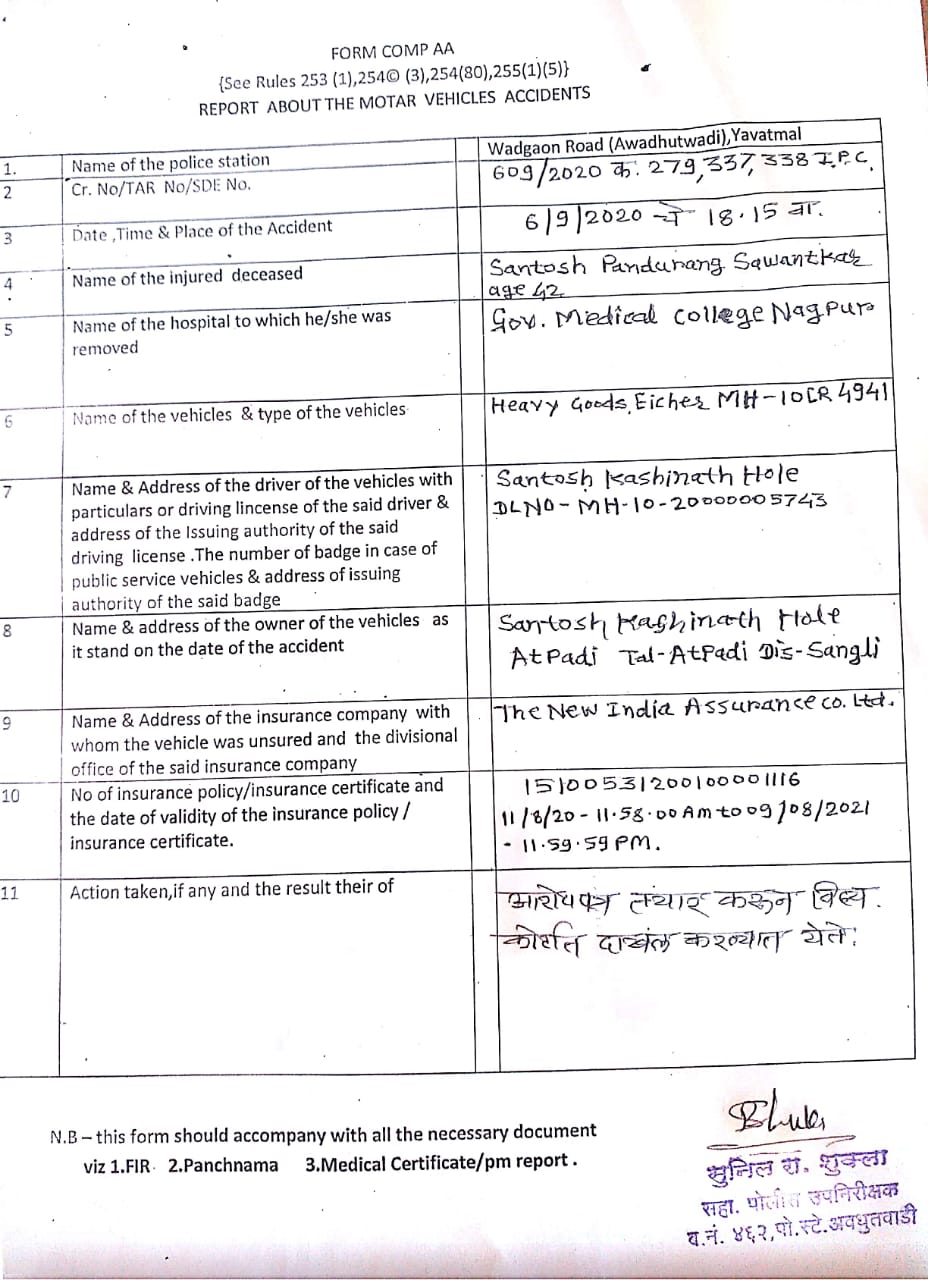 FORM COMP AA
{See Rules 253 (1),254© (3),254(80),255(1)(5)}
REPORT ABOUT THE MOTAR VEHICLES ACCIDENTS
1. Name of the police station Wadgaon Road (Awadhutwadi),Yavatmal
2 Cr. No/TAR No/SDE No. 609/2020 क. 279,337,338 I.P.C.
3 Date ,Time & Place of the Accident 6/9/2020 चे 18.15 वा.
4 Name of the injured deceased Santosh Pandurang Sawantkar
age 42
5 Name of the hospital to which he/she was Gov. Medical college Nagpur
removed
6 Name of the vehicles & type of the vehicles Heavy Goods, Eicher MH-10CR 4941
7 Name & Address of the driver of the vehicles with Santosh Kashinath Hole
particulars or driving lincense of the said driver & DLNO- MH-10-20000005743
address of the Issuing authority of the said
driving license .The number of badge in case of
public service vehicles & address of issuing
authority of the said badge
8 Name & address of the owner of the vehicles as Santosh Kashinath Hole
it stand on the date of the accident AtPadi Tal-AtPadi Dis-Sangli
9 Name & Address of the insurance company with The New India Assurance co. Ltd.
whom the vehicle was unsured and the divisional
office of the said insurance company
10 No of insurance policy/insurance certificate and 15100531200100001116
the date of validity of the insurance policy / 11/8/20 - 11.58.00 Am to 09/08/2021
insurance certificate. - 11.59.59 PM.
11 Action taken,if any and the result their of आरोपपत्र तयार करून
दाखल करण्यात येते.
N.B – this form should accompany with all the necessary document
viz 1.FIR 2.Panchnama 3.Medical Certificate/pm report .
सुनिल रा. शुक्ला
सहा. पोलीस उपनिरीक्षक
ब.नं. ४६२,पो.स्टे.अवधुतवाडी